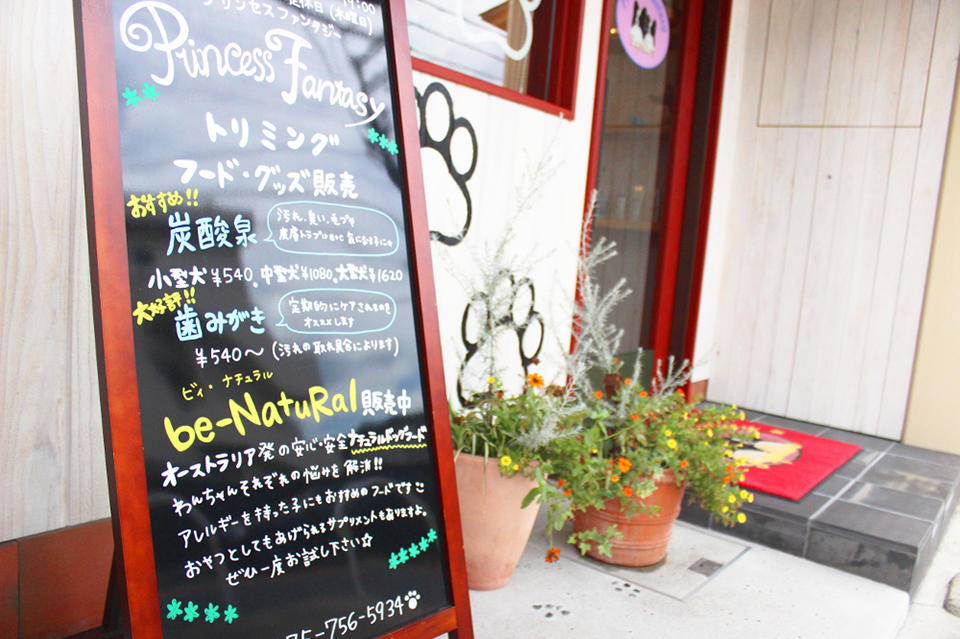 19:00
定休日(木曜日)
プリンセスファンタジー
Princess Fantasy
トリミング
フード・グッズ販売
おすすめ!!
炭酸泉
汚れ、臭い、毛ヅヤ
皮膚トラブル など 気になる子に
小型犬¥540、中型犬¥1080、大型犬¥1620
大好評!!
歯みがき
定期的にケアされるのを
オススメします
¥540〜 (汚れの取れ具合によります)
ビィ・ナチュラル
be-NatuRal 販売中
オーストラリア発の安心・安全ナチュラルドッグフード
わんちゃんそれぞれの悩みを解消!!
アレルギーを持った子にもおすすめのフードです
おやつとしてもあげられるサプリメントもありますよ。
ぜひ一度お試し下さい☆
75-756-5934